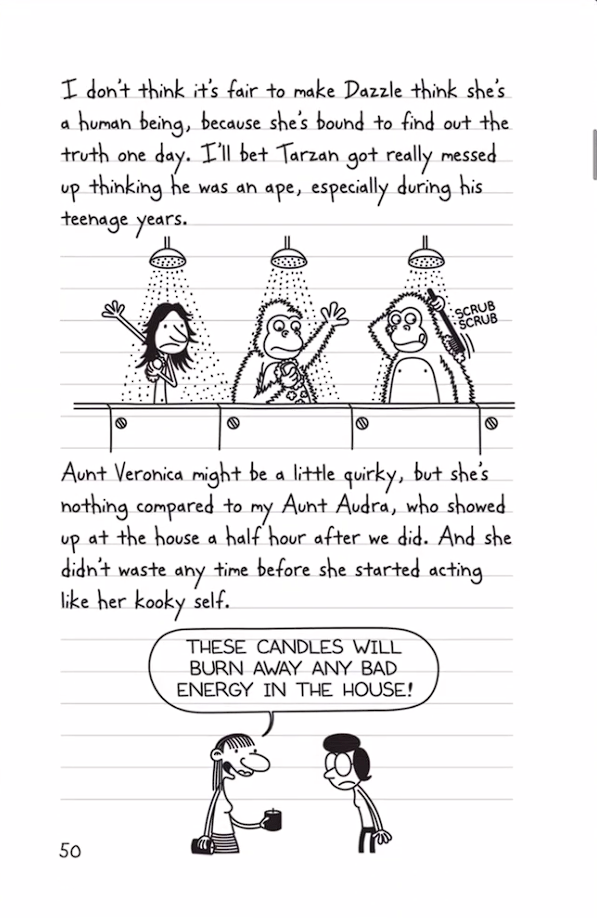 I don't think it's fair to make Dazzle think she's
a human being, because she's bound to find out the
truth one day. I'll bet Tarzan got really messed
up thinking he was an ape, especially during his
teenage years.
SCRUB
SCRUB
Aunt Veronica might be a little quirky, but she's
nothing compared to my Aunt Audra, who showed
up at the house a half hour after we did. And she
didn't waste any time before she started acting
like her kooky self.
THESE CANDLES WILL
BURN AWAY ANY BAD
ENERGY IN THE HOUSE!
50